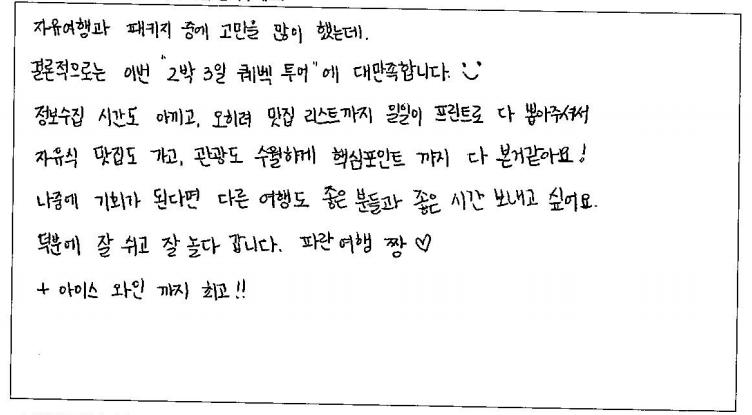 자유여행과 패키지 중에 고민을 많이 했는데.
결론적으로는 이번 "2박 3일 퀘벡 투어"에 대만족합니다. ツ
정보수집 시간도 아끼고, 오히려 맛집 리스트까지 일일이 프린트로 다 뽑아주셔서
자유식 맛집도 가고, 관광도 수월하게 핵심포인트 까지 다 본거같아요!
나중에 기회가 된다면 다른 여행도 좋은 분들과 좋은 시간 보내고 싶어요.
덕분에 잘 쉬고 잘 놀다 갑니다. 파란여행 짱 ♡
+ 아이스 와인 까지 최고!!